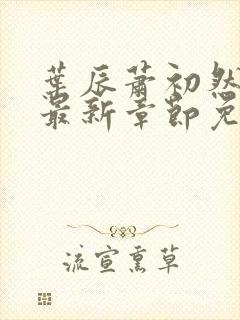 叶辰萧初然
最新章节免
流宣熏草